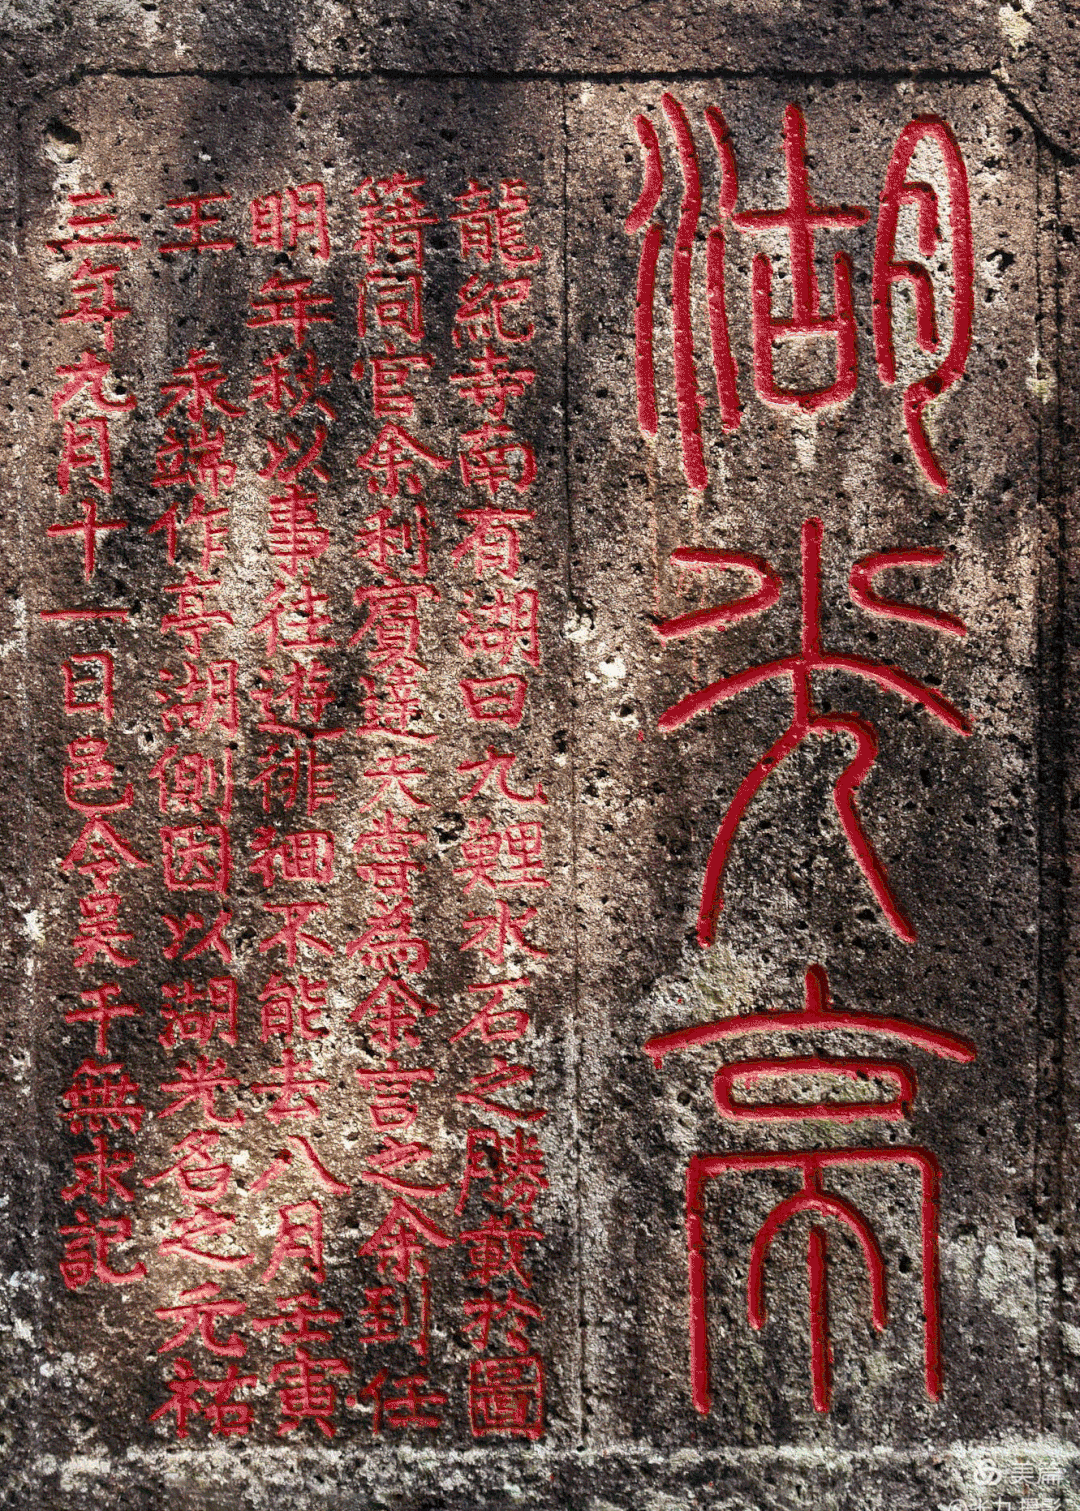 湖光亭
龍紀寺南有湖曰九鯉水石之勝載於圖
籍同官余利賓達夫嘗為余言之余到任
明年秋以事往遊徘徊不能去八月壬寅
王 端作亭湖側因以湖光名之元祐
三年九月十一日邑令吳千無求記
美篇